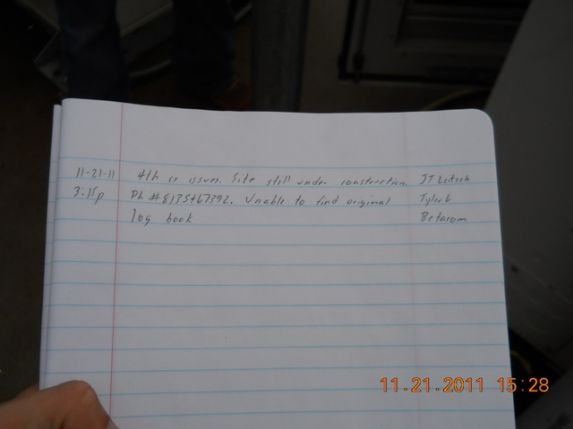 11-21-11 4th cx issues. Site still under construction JT
3:15p Ph # 8135467392. Unable to find original Tyler b
log book Betacom
11.21.2011 15:28